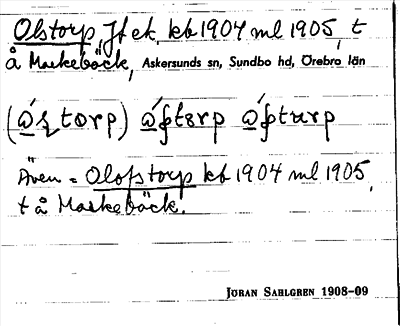 Olstorp, Jf ek, kb 1904 ml 1905, t
å Markebäck, Askersunds sn, Sundbo hd, Örebro län
torp)
Även = Olofstorp kb 1904 ml 1905,
t å Markebäck.
JÖRAN SAHLGREN 1908-09